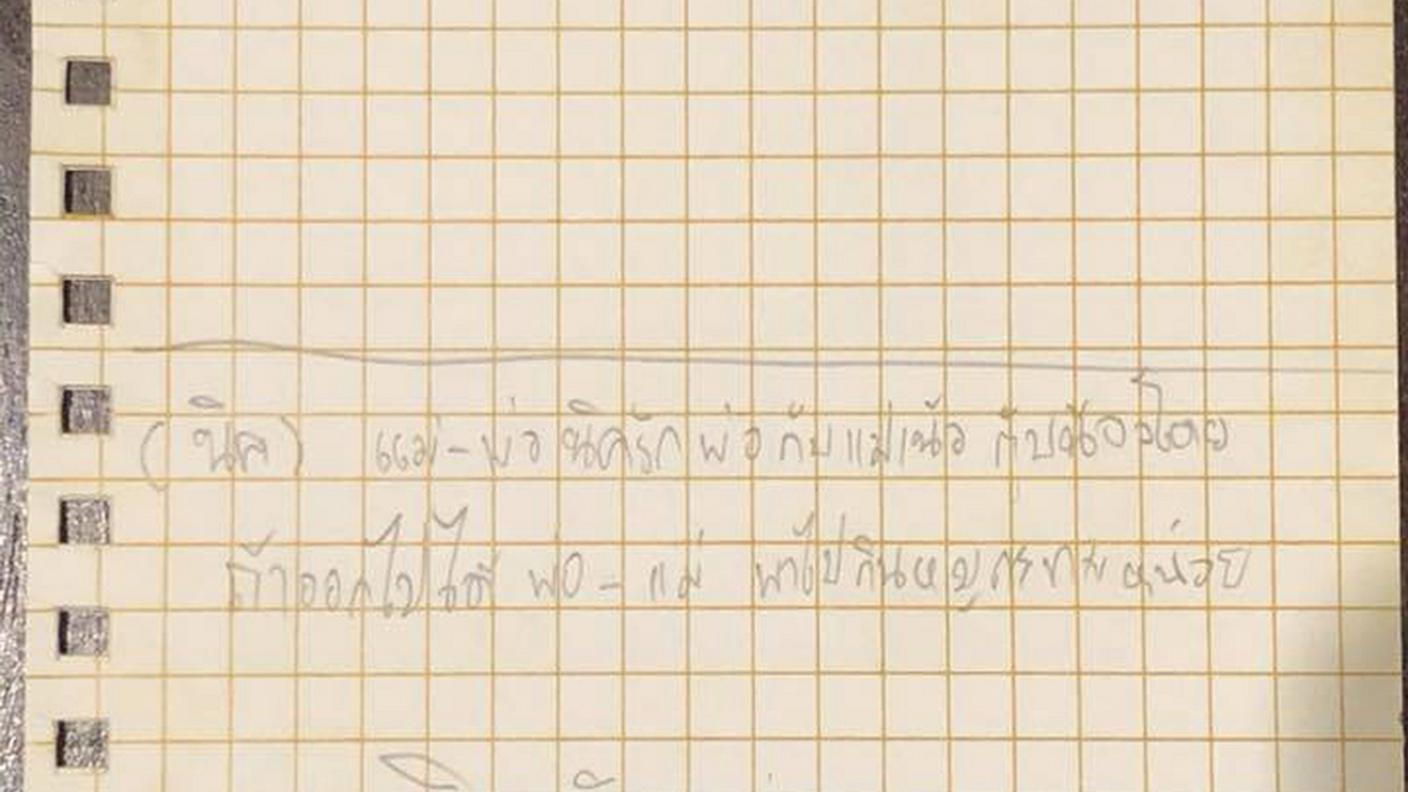 (นิค) แม่-พ่อ นิครักพ่อกับแม่ กับน้อง
ถ้าออกไปได้ พ่อ-แม่ พาไปกินหมูกระทะหน่อย